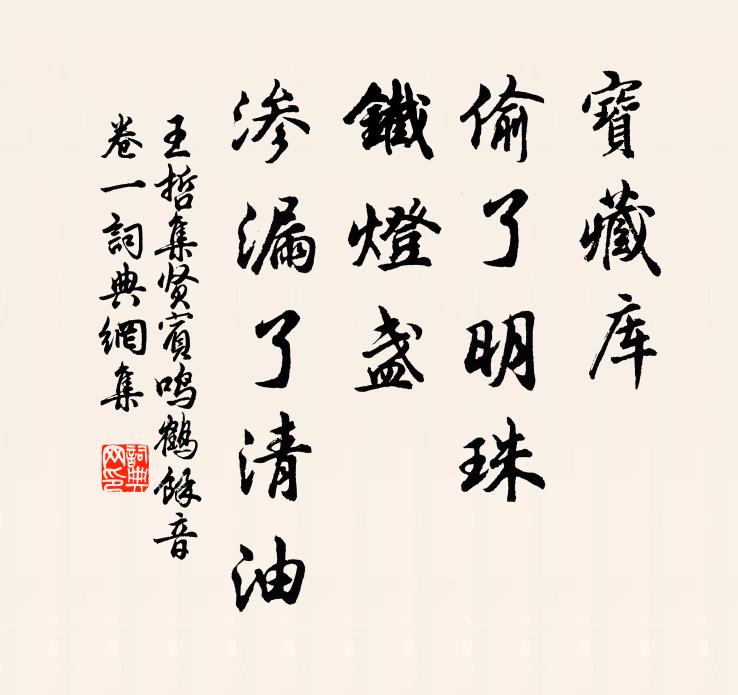 寶藏库
偷了明珠
鐵燈盞
渗漏了清油
王哲集贤賓鸣鶴餘音
卷一詞典網集
詞典
网印